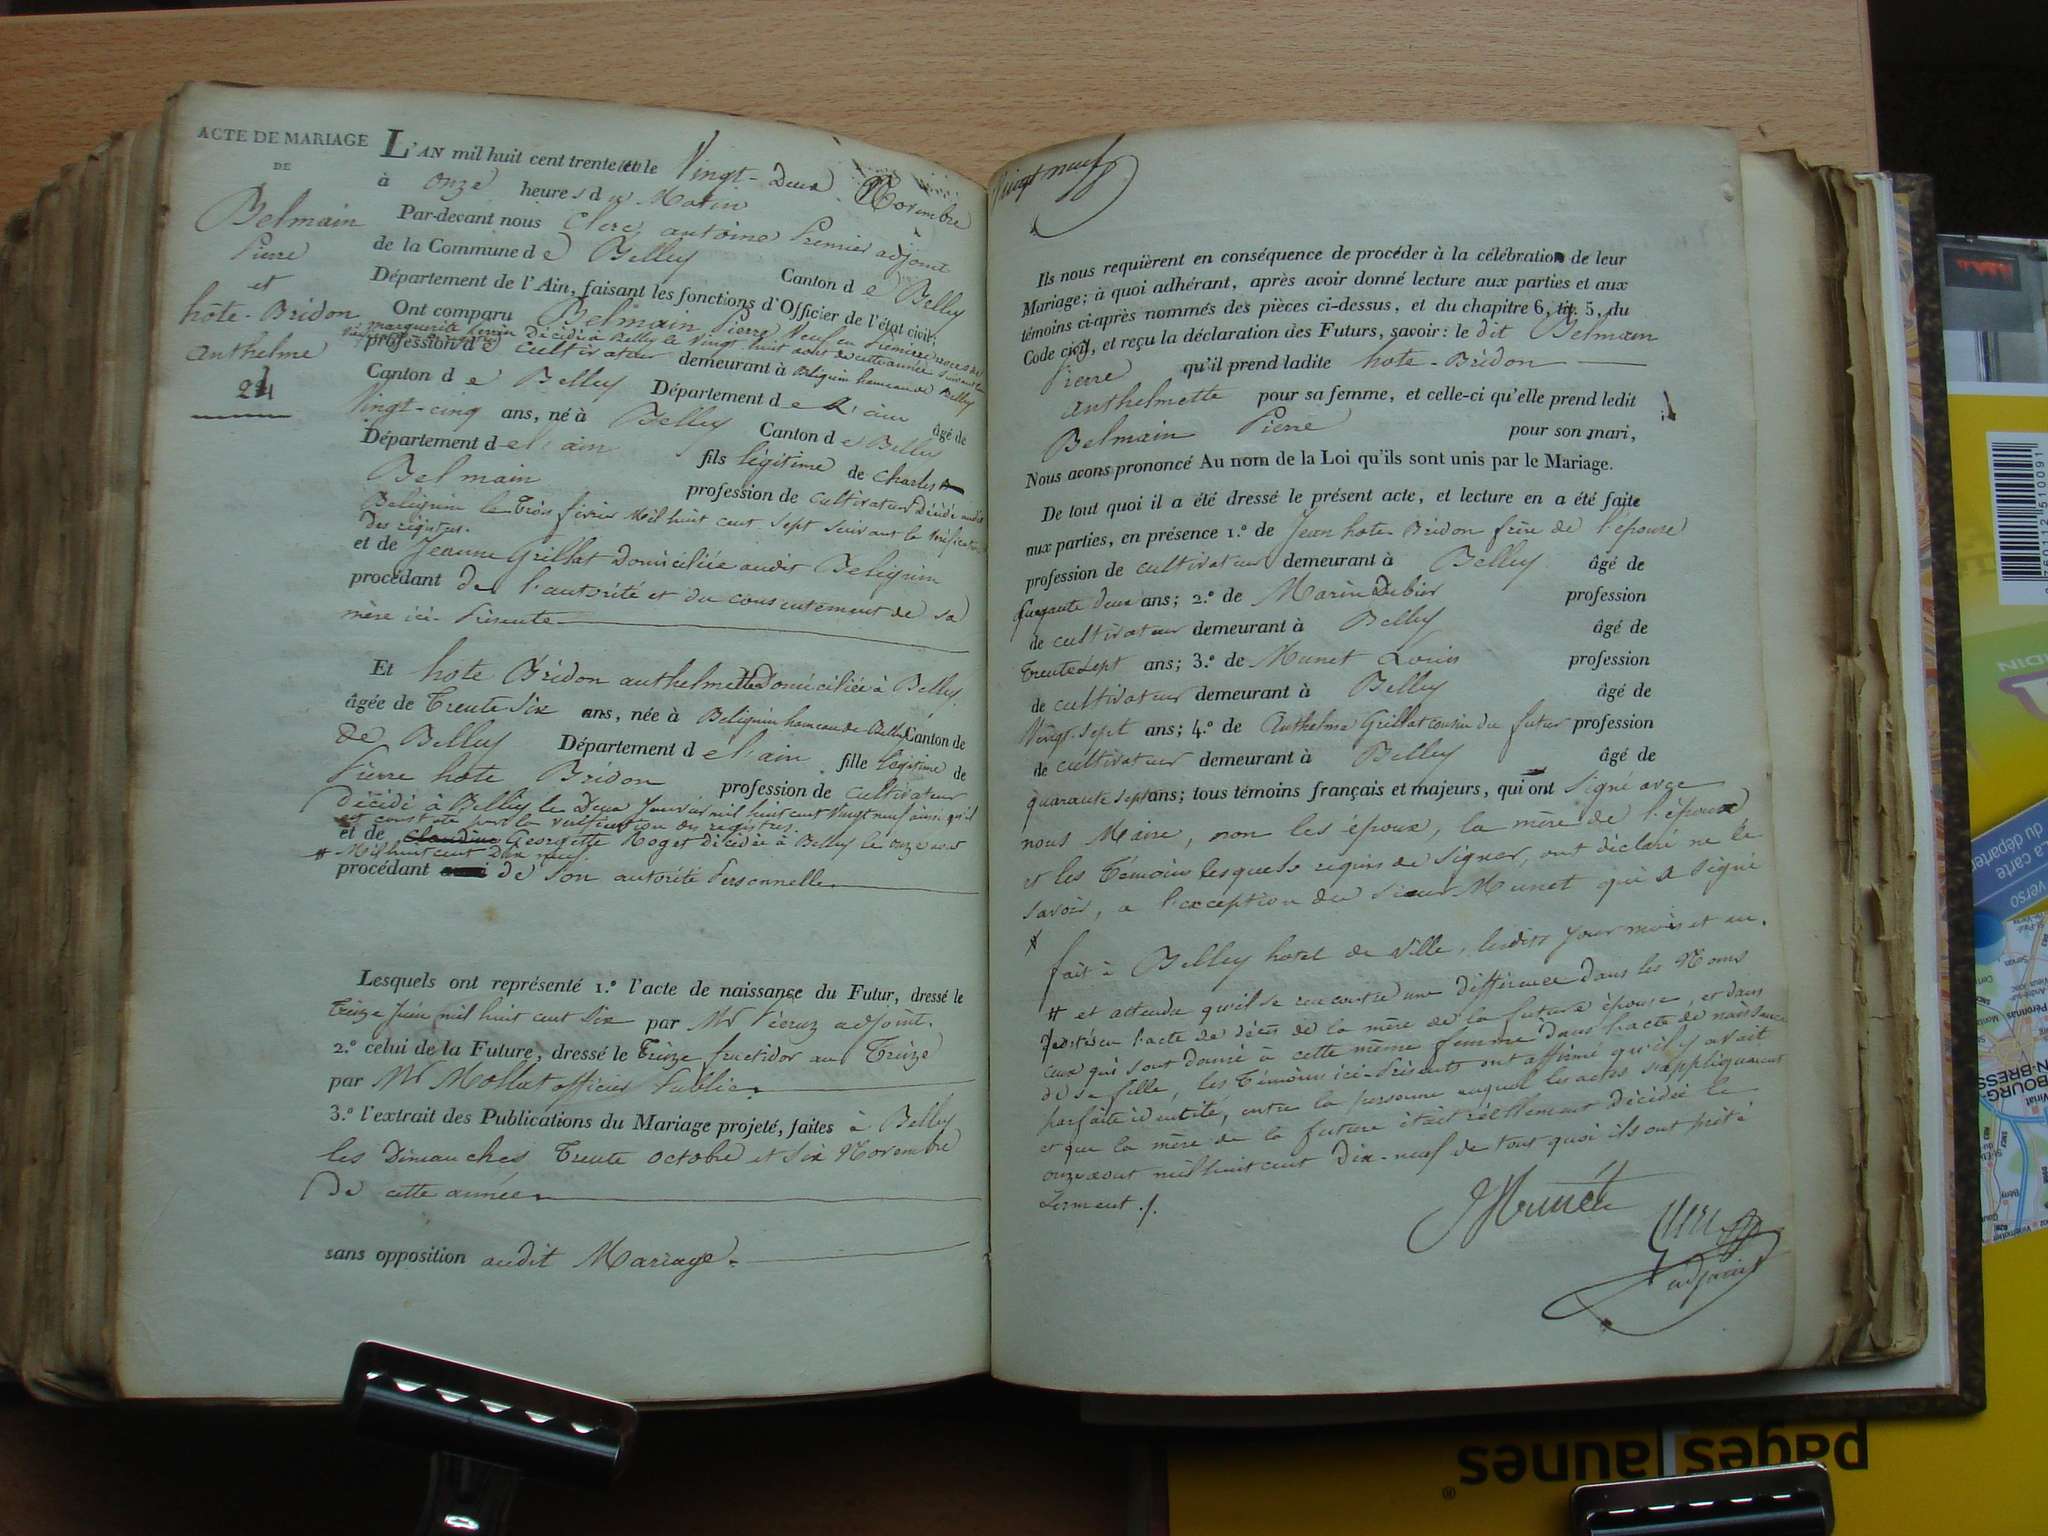 ACTE DE MARIAGE
DE
Belmain
Pierre
et
hôte-Bridon
Anthelme
24
L'AN mil huit cent trente le Vingt-Deux Novembre
à onze heures du Matin
Par-devant nous Clerc antoine Premier adjoint
de la Commune de Belley Canton de Belley
Département de l'Ain, faisant les fonctions d'Officier de l'état civil;
Ont comparu Belmain Pierre Veuf en Premières noces de
marguerite Perrin Décédée à Belley le Vingt huit août de cette année suivant la
profession de Cultivateur demeurant à Beliguin hameau de Belley
Canton de Belley Département de l'ain âgé de
Vingt-cinq ans, né à Belley Canton de Belley
Département de l'ain fils légitime de Charles
Belmain profession de Cultivateur Décédé audit
Beliguin le Trois février Mil huit cent sept suivant la vérification
des registres.
et de Jeanne Grillat Domiciliée audit Beliguin
procédant de l'autorité et du consentement de sa
mère ici-Présente
Et hote Bridon anthelmette Domiciliée à Belley.
âgée de Trente Six ans, née à Beliguin hameau de Belley Canton de
de Belley Département de l'ain fille légitime de
Pierre hote Bridon profession de Cultivateur
Décédé à Belley le Deux Janvier mil huit cent Vingt neuf ainsi qu'il
est constaté par la vérification des registres.
et de Claudine Georgette Roget Décédée à Belley le onze aout
# Mil huit cent Dix neuf.
procédant de Son autorité Personnelle
Lesquels ont représenté 1.º l'acte de naissance du Futur, dressé le
Treize Juin mil huit cent Six par Mr Pécruz adjoint.
2.º celui de la Future, dressé le Treize fructidor an Treize
par Mr Mollat officier Public.
3.º l'extrait des Publications du Mariage projeté, faites à Belley
les Dimanches Trente Octobre et Six Novembre
De cette année
sans opposition audit Mariage.
Vingt neuf
Ils nous requièrent en conséquence de procéder à la célébration de leur
Mariage; à quoi adhérant, après avoir donné lecture aux parties et aux
témoins ci-après nommés des pièces ci-dessus, et du chapitre 6, tit. 5, du
Code civil, et reçu la déclaration des Futurs, savoir: le dit Belmain
Pierre qu'il prend ladite hote-Bridon
Anthelmette pour sa femme, et celle-ci qu'elle prend ledit
Belmain Pierre pour son mari,
Nous avons prononcé Au nom de la Loi qu'ils sont unis par le Mariage.
De tout quoi il a été dressé le présent acte, et lecture en a été faite
aux parties, en présence 1.º de Jean hote-Bridon frère de l'épouse
profession de cultivateur demeurant à Belley âgé de
quarante deux ans; 2.º de Marin Dubier profession
de cultivateur demeurant à Belley âgé de
Trente Sept ans; 3.º de Munet Lorin profession
de cultivateur demeurant à Belley âgé de
Vingt-sept ans; 4.º de Anthelme Grillat cousin du futur profession
de cultivateur demeurant à Belley âgé de
quarante sept ans; tous témoins français et majeurs, qui ont signé avec
nous Maire, non les époux, la mère de l'époux
et les Témoins lesquels requis de signer, ont déclaré ne le
savoir, a l'exception du sieur Munet qui a signé
fait à Belley hotel de Ville, lesdits jour mois et an.
# et attendu qu'il se rencontre une différence dans les Noms
portés en l'acte de décès de la mère de la future épouse, et dans
ceux qui sont donné à cette même femme dans l'acte de naissance
de sa fille, les Témoins ici-Présents ont affirmé qu'il y avait
parfaite identité, entre la personne auquel les actes s'appliquaient
et que la mère de la future était réellement Décédée le
onze aout mil huit cent dix-neuf de tout quoi ils ont prêté
Serment ./.
Munet
Clerc
adjoint
pages jaunes
La carte
du départem
verso
BOURG-
N-BRESS
Péronnas